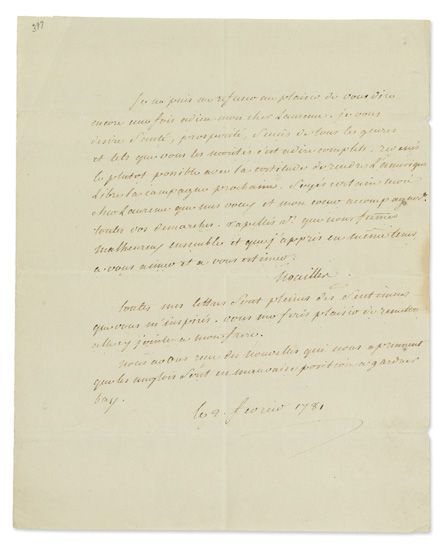 397
Je ne puis me refuser au plaisir de vous dire
encore une fois adieu mon cher Laurence. je vous
desire santé, prosperité, succès de tous les genres
et tels que vous les merités c'est adire complets. revenés
le plutot possible avec la certitude de rendre L'amerique
Libre la campagne prochaine. Soyés certain mon
cher Laurence que mes voeux et mon coeur accompagnent
toutes vos demarches. rapellés que nous fumes
malheureux ensemble et que j'appris en même tems
a vous aimer et a vous estimer.
Noailles
toutes mes lettres sont pleines des sentimens
que vous m'inspirés. vous me ferés plaisir de remettre
celle cy jointe a mon frere.
Nous avons reçu des nouvelles qui nous aprennent
que les anglois sont en mauvaise position a gardner
bay.
le 2. fevrier 1781